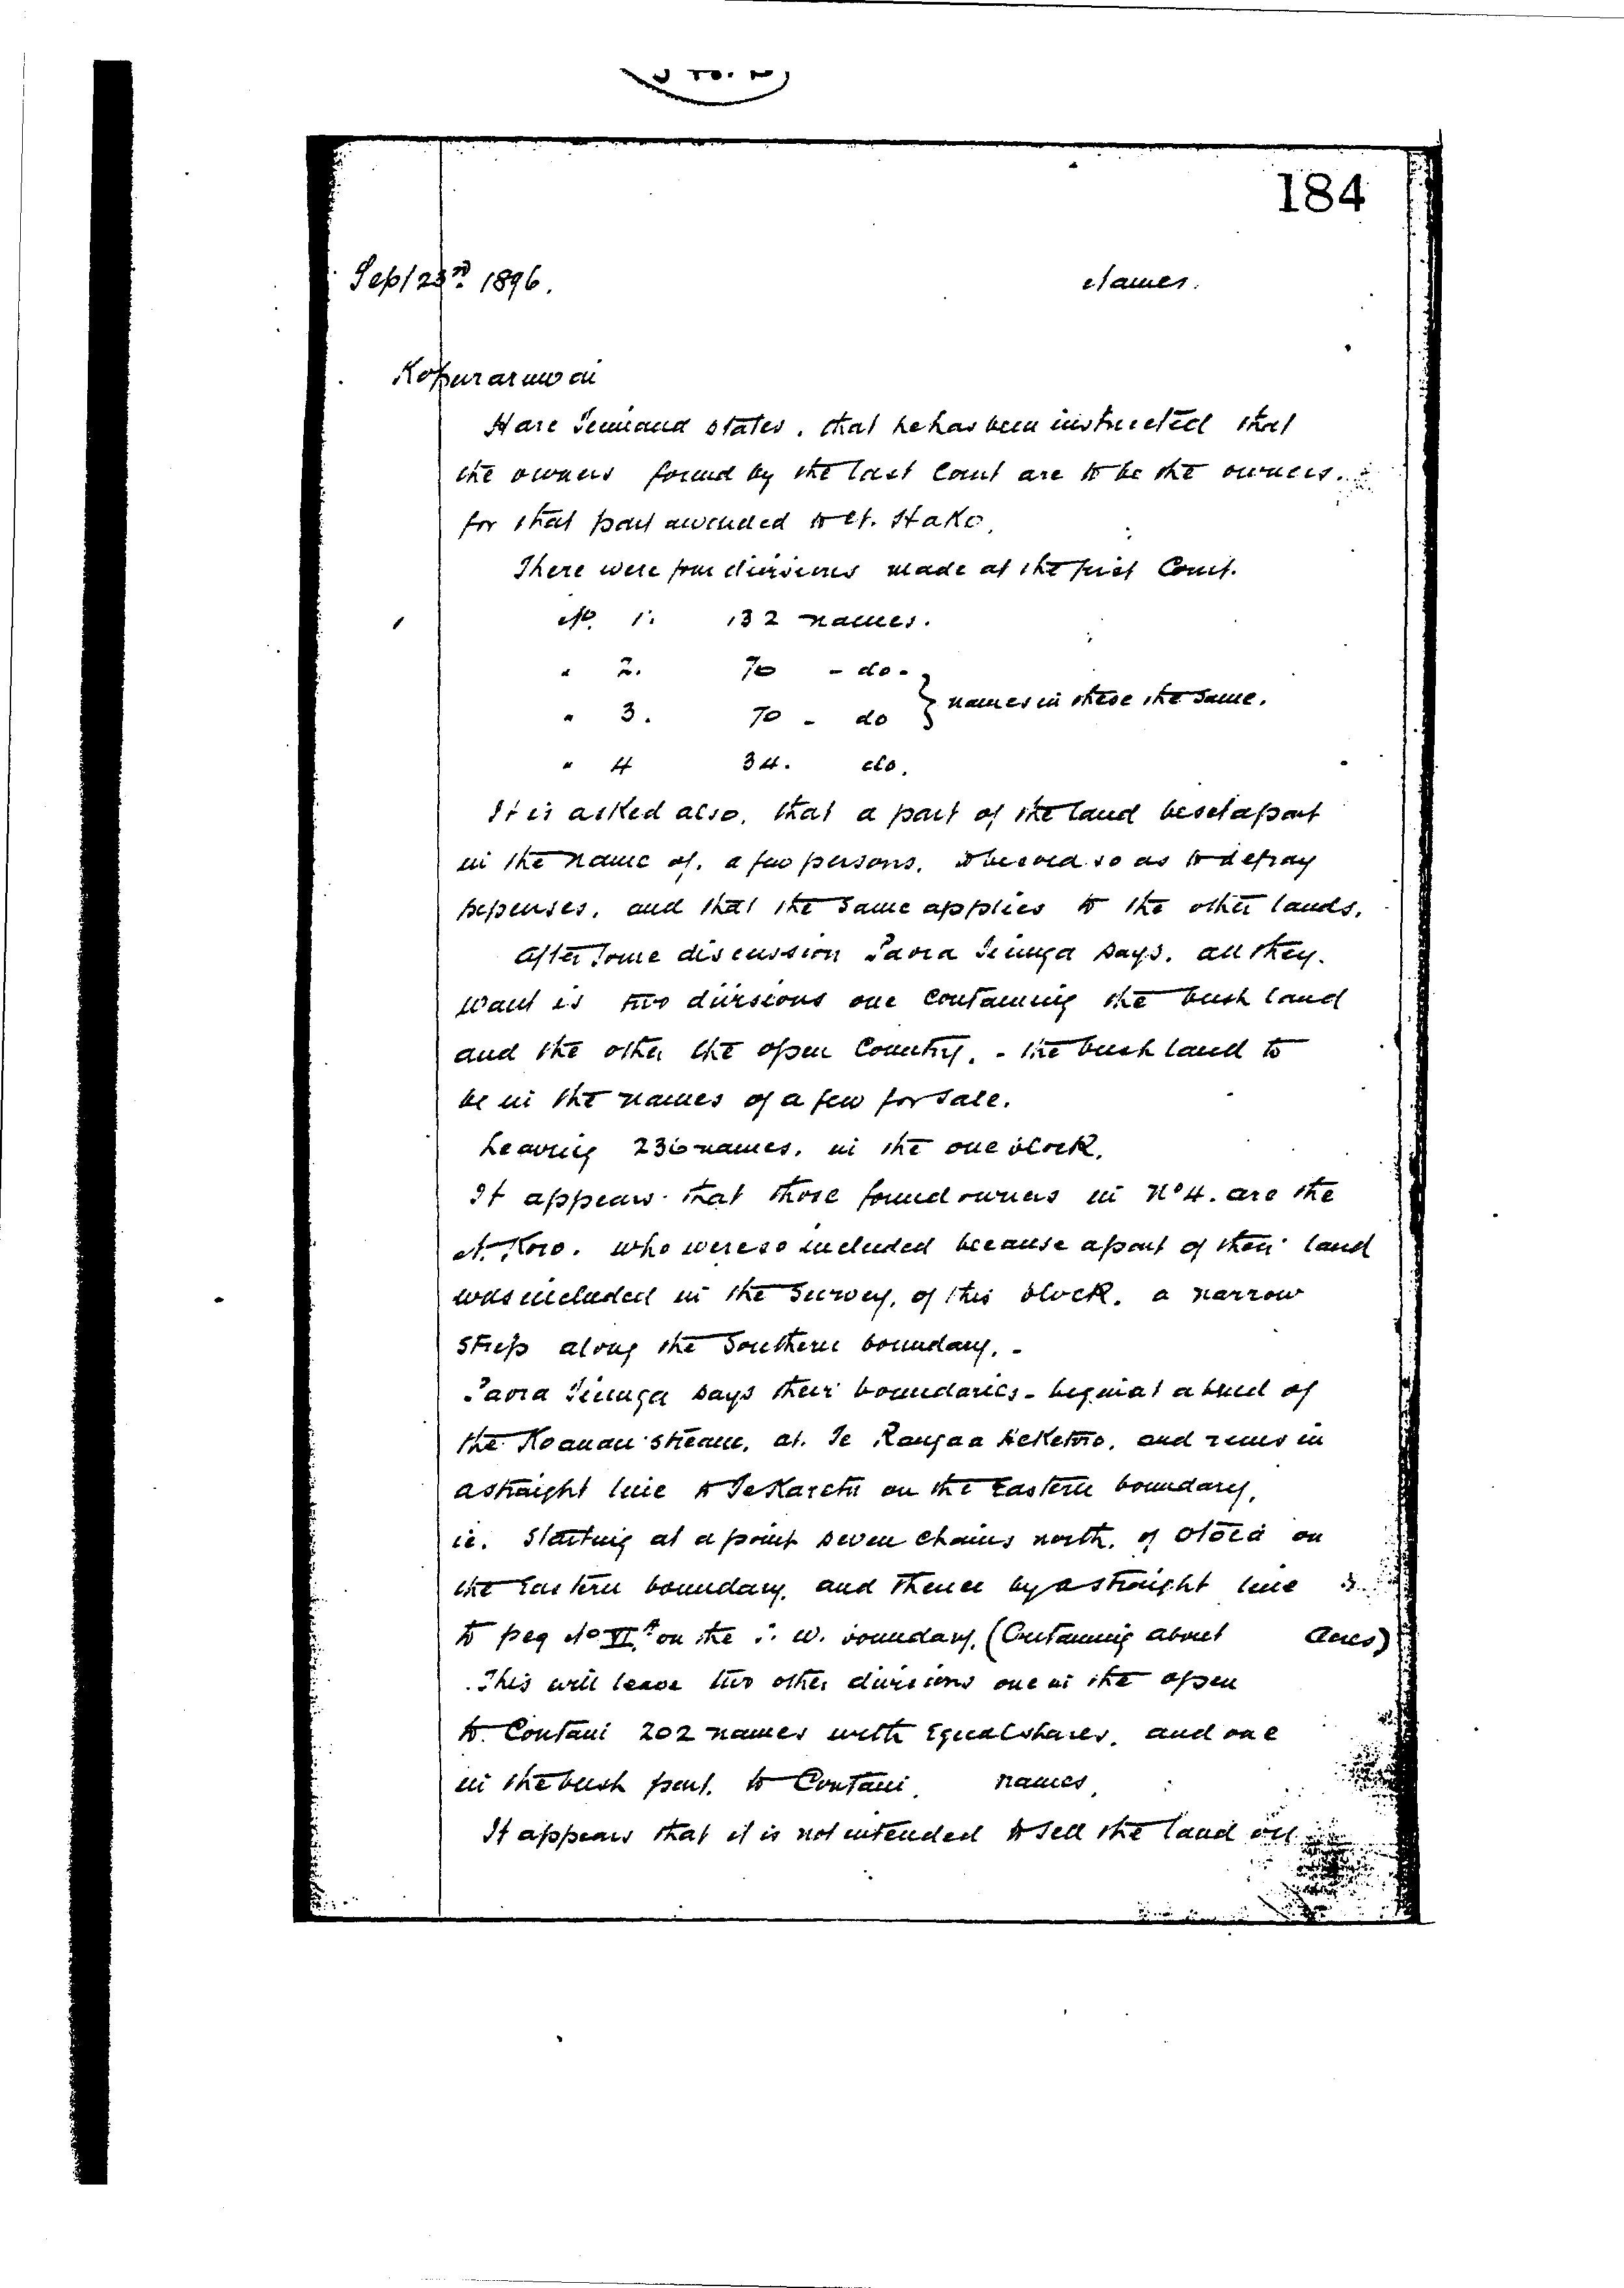 184
Sept 23rd 1896.
Names.
Kopuraruwai
Hare Teimana states, that he has been instructed that
the owners found by the last Court are to be the owners.
for that part awarded to N. Hako.
There were four divisions made at the first Court.
No. 1. 132 names.
" 2. 70 - do -
" 3. 70 - do } names in these the same.
" 4 34. do.
It is asked also, that a part of the land be set apart
in the name of, a few persons, to be sold so as to defray
expenses, and that the same applies to the other lands.
After some discussion Paora Tinuga says, all they
want is two divisions one containing the bush land
and the other the open Country. - the bush land to
be in the names of a few for sale.
Leaving 236 names, in the one block.
It appears that those found owners in No 4. are the
N. Koro. who were so included because a part of their land
was included in the Survey, of this block. a narrow
Strip along the Southern boundary. -
Paora Tinuga says their boundaries - begin at a bend of
the stream, at. Te and runs in
a straight line to on the Eastern boundary,
ie. Starting at a point seven chains north, of on
the Eastern boundary, and thence by a straight line
to peg No VI on the W. boundary. (Containing about Acres)
This will leave two other divisions one in the open
to Contain 202 names with Equal shares, and one
in the bush part, to Contain names
It appears that it is not intended to sell the land